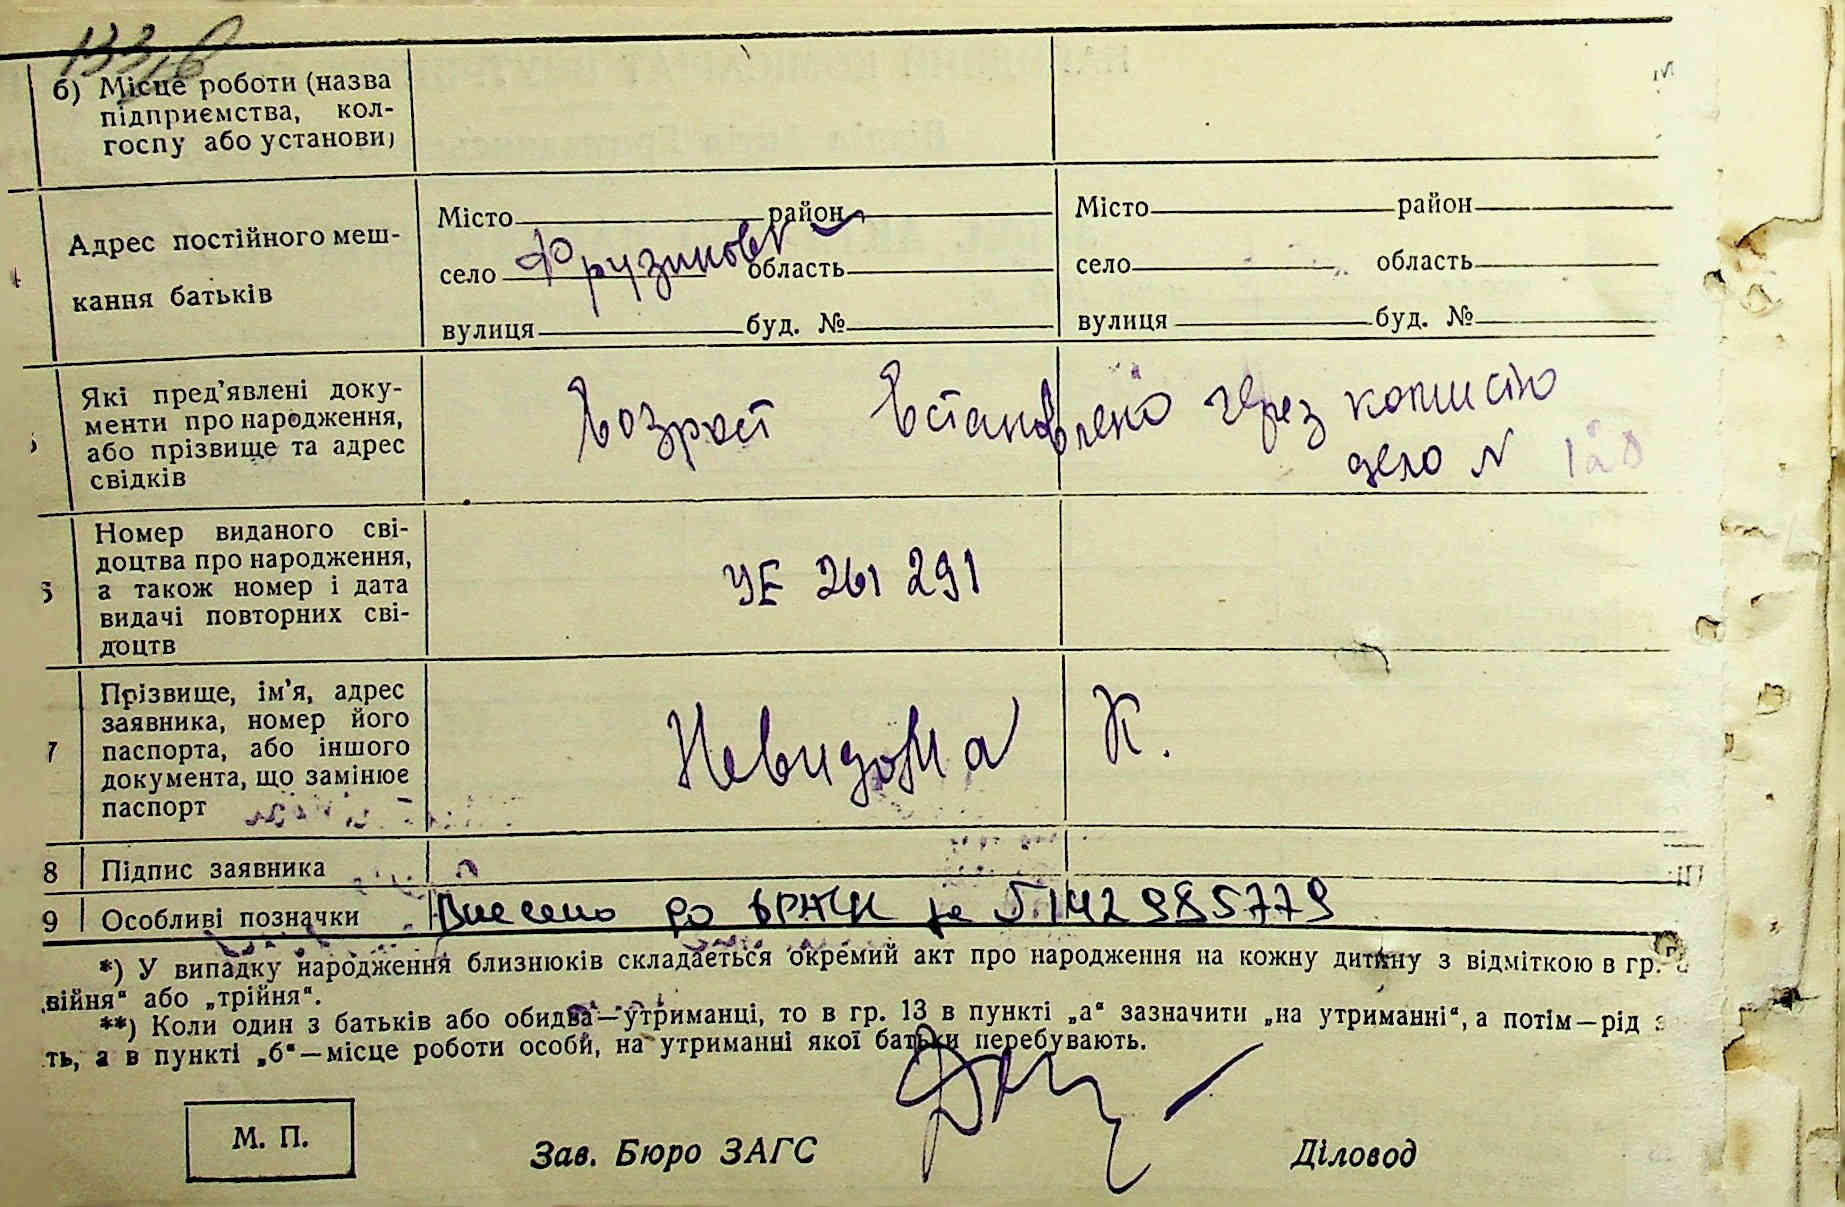 133,в
б) Місце роботи (назва
підприємства, кол-
госпу або установи)
Адрес постійного меш-
кання батьків
Місто район
село Фрузиновка область
вулиця буд. №
Місто район
село область
вулиця буд. №
Які пред'явлені доку-
менти про народження,
або прізвище та адрес
свідків
Возраст Встановлено через комисію
дело N
Номер виданого сві-
доцтва про народження,
а також номер і дата
видачі повторних сві-
доцтв
УЕ 261 291
7 Прізвище, ім'я, адрес
заявника, номер його
паспорта, або іншого
документа, що замінює
паспорт
Невидома К.
8 Підпис заявника
9 Особливі позначки Внесено до ДРАЦС за 5142985779
*) У випадку народження близнюків складається окремий акт про народження на кожну дитину з відміткою в гр.
війня" або „трійня".
**) Коли один з батьків або обидва—утриманці, то в гр. 13 в пункті „а" зазначити „на утриманні", а потім—рід з
ть, а в пункті „б"—місце роботи особи, на утриманні якої батьки перебувають.
М. П.
Зав. Бюро ЗАГС
Діловод